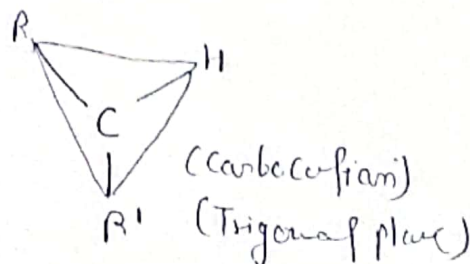 R
H
C
R'
(Carbocation)
(Trigonal plane)